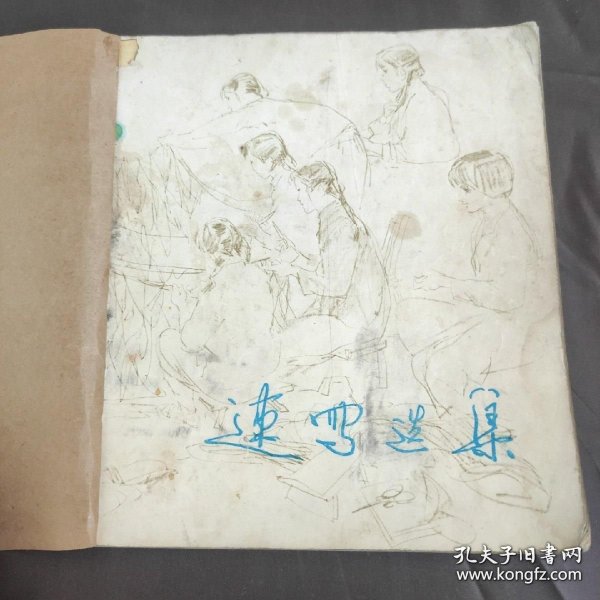 速写选集
孔夫子旧书网
www.kongfz.com